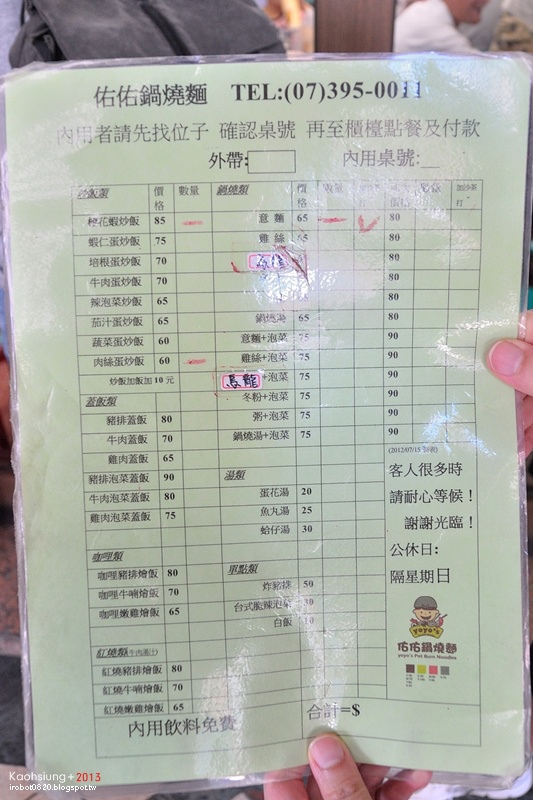 佑佑鍋燒麵 TEL:(07)395-0011
內用者請先找位子 確認桌號 再至櫃檯點餐及付款
外帶: 內用桌號:__
炒飯類 價格 數量
櫻花蝦炒飯 85
蝦仁蛋炒飯 75
培根蛋炒飯 70
牛肉蛋炒飯 70
辣泡菜炒飯 65
茄汁蛋炒飯 65
蔬菜蛋炒飯 60
肉絲蛋炒飯 60
炒飯加飯加10元
蓋飯類
豬排蓋飯 80
牛肉蓋飯 70
雞肉蓋飯 65
豬排泡菜蓋飯 90
牛肉泡菜蓋飯 80
雞肉泡菜蓋飯 75
咖哩類
咖哩豬排燴飯 80
咖哩牛喃燴飯 70
咖哩嫩雞燴飯 65
紅燒類(牛肉湯汁)
紅燒豬排燴飯 80
紅燒牛喃燴飯 70
紅燒嫩雞燴飯 65
內用飲料免費
鍋燒類 價格 數量
意麵 65 80
雞絲 65 80
烏龍 80
80
80
鍋燒湯 65 80
意麵+泡菜 75 90
雞絲+泡菜 75 90
烏龍+泡菜 75 90
冬粉+泡菜 75 90
粥+泡菜 75 90
鍋燒湯+泡菜 75 90
湯類
蛋花湯 20
魚丸湯 25
蛤仔湯 30
單點類
炸豬排 50
台式脆辣泡菜 30
白飯 10
合計=$
客人很多時
請耐心等候！
謝謝光臨！
公休日:
隔星期日
yoyo's
佑佑鍋燒麵
yoyo's Pot Burn Noodles
Kaohsiung+2013
irobot0820.blogspot.tw